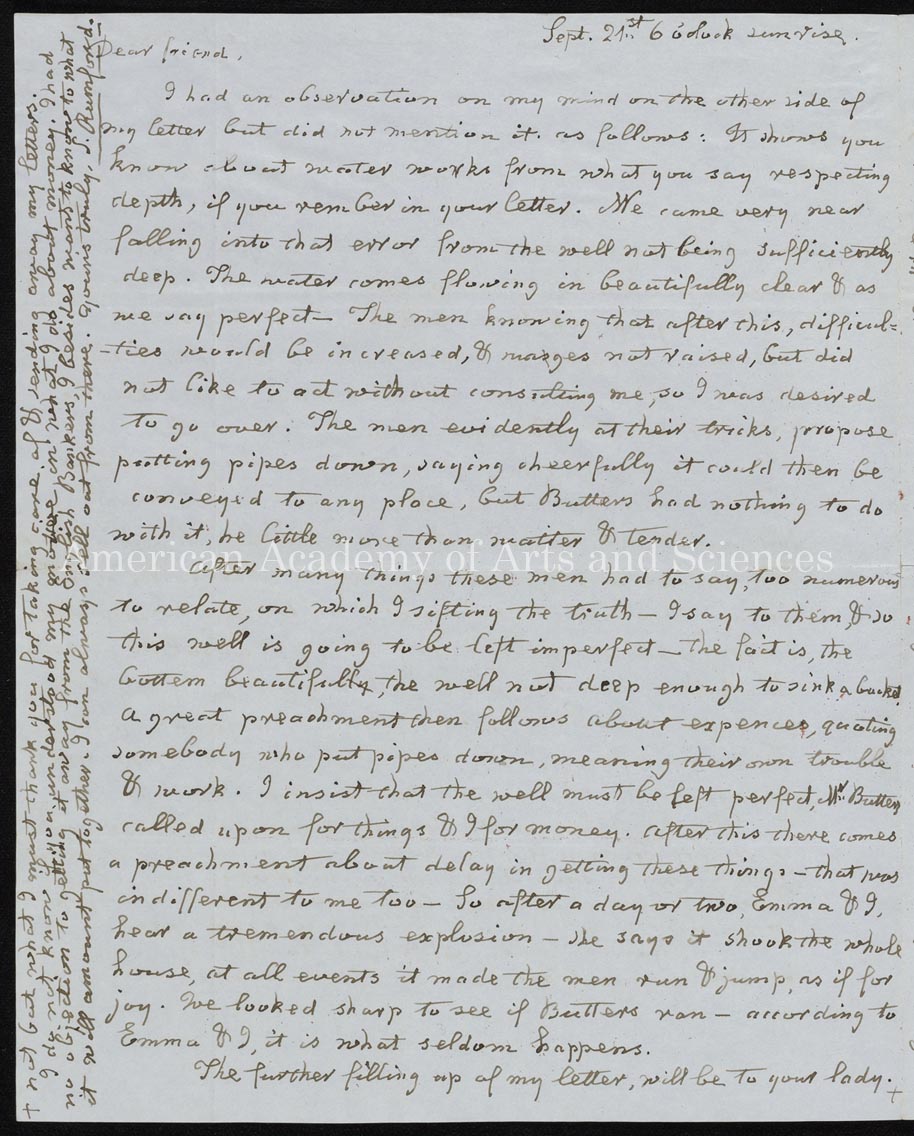 Sept. 21st. 6 o'clock sunrise.
Dear friend,
I had an observation on my mind on the other side of
my letter but did not mention it. as follows: It shows you
know about water works from what you say respecting
depth, if you rember in your letter. We came very near
falling into that error from the well not being sufficiently
deep. The water comes flowing in beautifully clear & as
we say perfect — The men knowing that after this, difficul=
-ties would be increased, & wages not raised, but did
not like to act without consulting me, so I was desired
to go over. The men evidently at their tricks, propose
putting pipes down, saying cheerfully it could then be
conveyed to any place, but Butters had nothing to do
with it, he little more than waiter & tender.
After many things these men had to say, too numerous
to relate, on which I sifting the truth — I say to them, & so
this well is going to be left imperfect — the fact is, the
bottem beautifully, the well not deep enough to sink a bucket
A great preachment then follows about expences, quoting
somebody who put pipes down, meaning their own trouble
& work. I insist that the well must be left perfect, Mr. Butters
called upon for things & I for money. After this there comes
a preachment about delay in getting these things — that was
indifferent to me too — So after a day or two, Emma & I,
hear a tremendous explosion — she says it shook the whole
house, at all events it made the men run & jump, as if for
joy. We looked sharp to see if Butters ran — according to
Emma & I, it is what seldom happens.
The further filling up of my letter, will be to your lady. +
+ not but what I must thank you for taking care of & sending away my letters.
I do not know if you understood my motive in what I do about money. I had
no objection to getting it away from the English Bankers, besides want to know to what
it will amount put together. I can always sell out from there. Yours truly. S. Rumford.
American Academy of Arts and Sciences